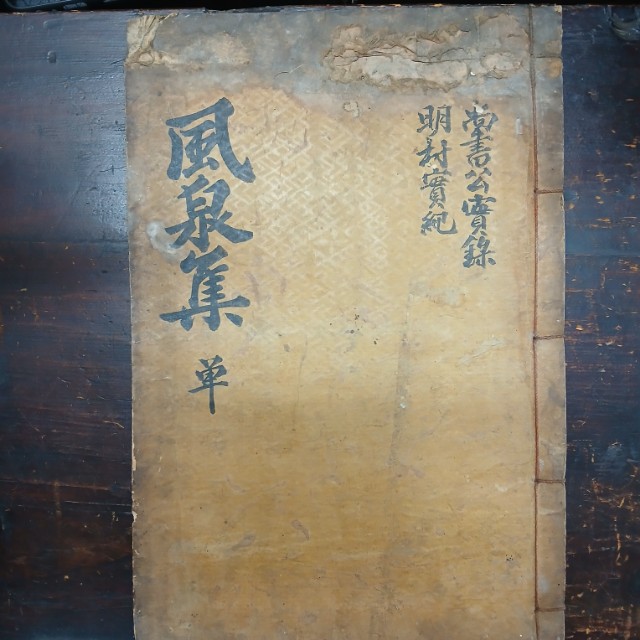 尚書公實錄
明村實紀
風泉集 單